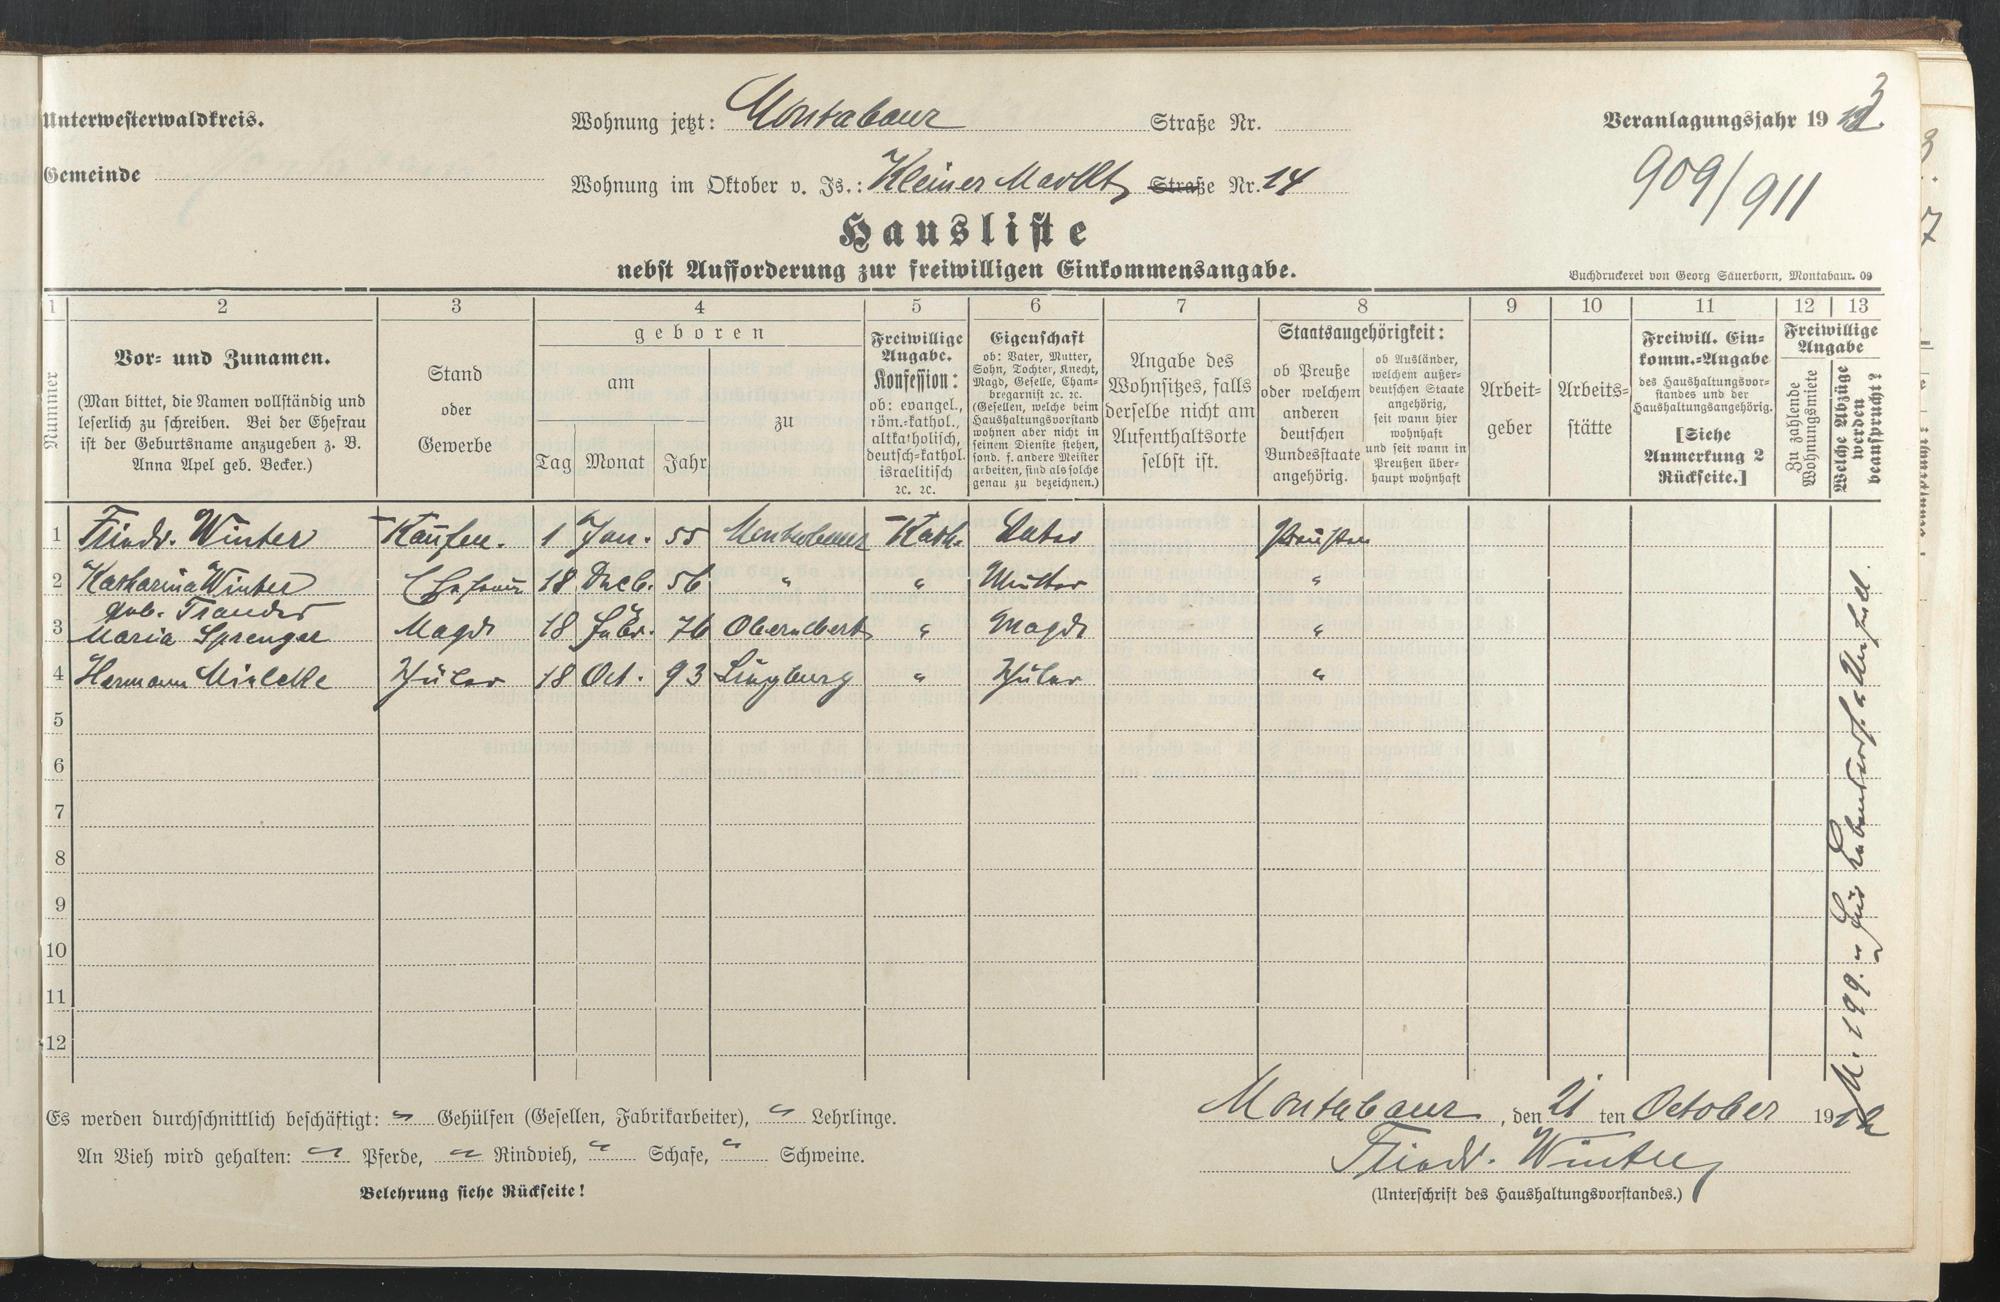 Unterwesterwaldkreis.
Wohnung jetzt: Montabaur Straße Nr.
Veranlagungsjahr 19 3.
Gemeinde
Wohnung im Oktober v. Js.: Kleiner Markt Straße Nr. 14
909/911
Hausliste
nebst Aufforderung zur freiwilligen Einkommensangabe.
Buchdruckerei von Georg Sauerborn, Montabaur. 09
1 2 3 4 5 6 7 8 9 10 11 12 13
Nummer
Vor- und Zunamen.
(Man bittet, die Namen vollständig und
leserlich zu schreiben. Bei der Ehefrau
ist der Geburtsname anzugeben z. B.
Anna Apel geb. Becker.)
Stand
oder
Gewerbe
geboren
am
zu
Tag Monat Jahr
Freiwillige
Angabe.
Konfession:
ob: evangel.,
röm.-kathol.,
altkatholisch,
deutsch-kathol.
israelitisch
ꝛc. ꝛc.
Eigenschaft
ob: Vater, Mutter,
Sohn, Tochter, Knecht,
Magd, Geselle, Cham-
bregarnist ꝛc. ꝛc.
(Gesellen, welche beim
Haushaltungsvorstand
wohnen aber nicht in
seinem Dienste stehen,
sond. f. andere Meister
arbeiten, sind als solche
genau zu bezeichnen.)
Angabe des
Wohnsitzes, falls
derselbe nicht am
Aufenthaltsorte
selbst ist.
Staatsangehörigkeit:
ob Preuße
oder welchem
anderen
deutschen
Bundesstaate
angehörig.
ob Ausländer,
welchem außer-
deutschen Staate
angehörig,
seit wann hier
wohnhaft
und seit wann in
Preußen über-
haupt wohnhaft
Arbeit-
geber
Arbeits-
stätte
Freiwill. Ein-
komm.-Angabe
des Haushaltungsvor-
standes und der
Haushaltungsangehörig.
[Siehe
Anmerkung 2
Rückseite.]
Freiwillige
Angabe
Zu zahlende
Wohnungsmiete
Welche Abzüge
werden
beansprucht?
1 Friedr. Winter Kaufm. 1 Jan. 55 Montabaur Kath. Vater Preußen
2 Katharina Winter Ehefrau 18 Decb. 56 " " Mutter "
geb.
3 Maria Sprenger Magd 18 Febr. 76 " Magd "
4 Hermann 18 Oct. 93 " "
5
6
7
8
9
10
11
12
M. 199. Für
Es werden durchschnittlich beschäftigt: " Gehülfen (Gesellen, Fabrikarbeiter), " Lehrlinge.
Montabaur, den 21 ten October 1912
An Vieh wird gehalten: " Pferde, " Rindvieh, " Schafe, " Schweine.
Friedr. Winter
Belehrung siehe Rückseite!
(Unterschrift des Haushaltungsvorstandes.)